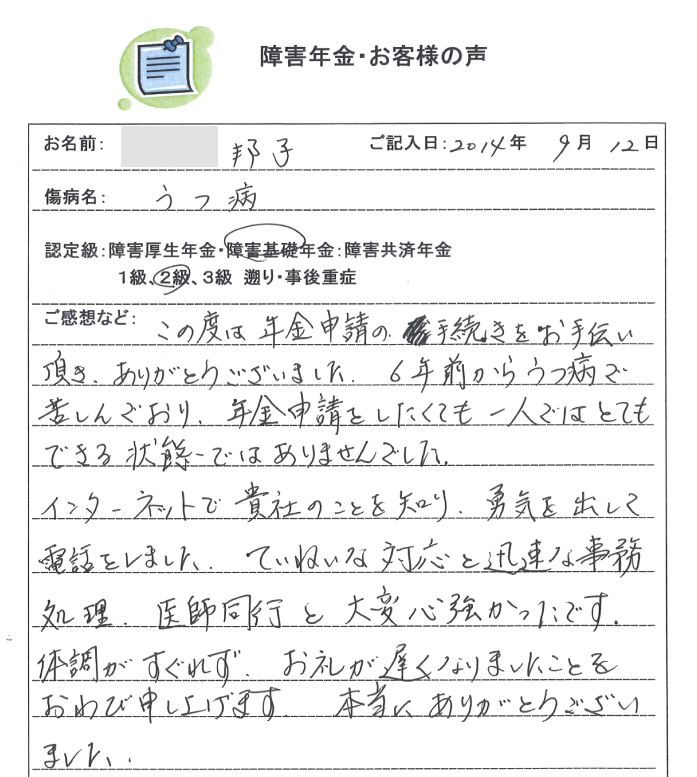 障害年金・お客様の声
お名前: 邦子 ご記入日:2014年 9月 12日
傷病名: うつ病
認定級:障害厚生年金・障害基礎年金:障害共済年金
1級、2級、3級 遡り・事後重症
ご感想など: この度は年金申請の手続きをお手伝い
頂き、ありがとうございました。6年前からうつ病で
苦しんでおり、年金申請をしたくても一人ではとても
できる状態ではありませんでした。
インターネットで貴社のことを知り、勇気を出して
電話をしました。ていねいな対応と迅速な事務
処理、医師同行と大変心強かったです。
体調がすぐれず、お礼が遅くなりましたことを
おわび申し上げます。本当にありがとうござい
ました。